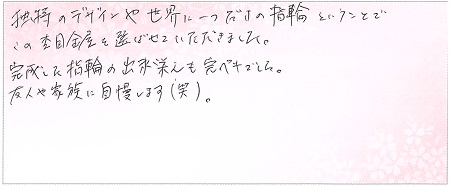 独特のデザインや世界に一つだけの指輪ということで
この杢目金屋を選ばせていただきました。
完成した指輪の出来栄えも完ペキでした。
友人や家族に自慢します(笑)。